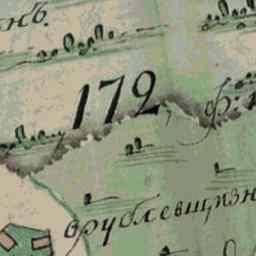 нъ.
172,
ф:
орублевщизн